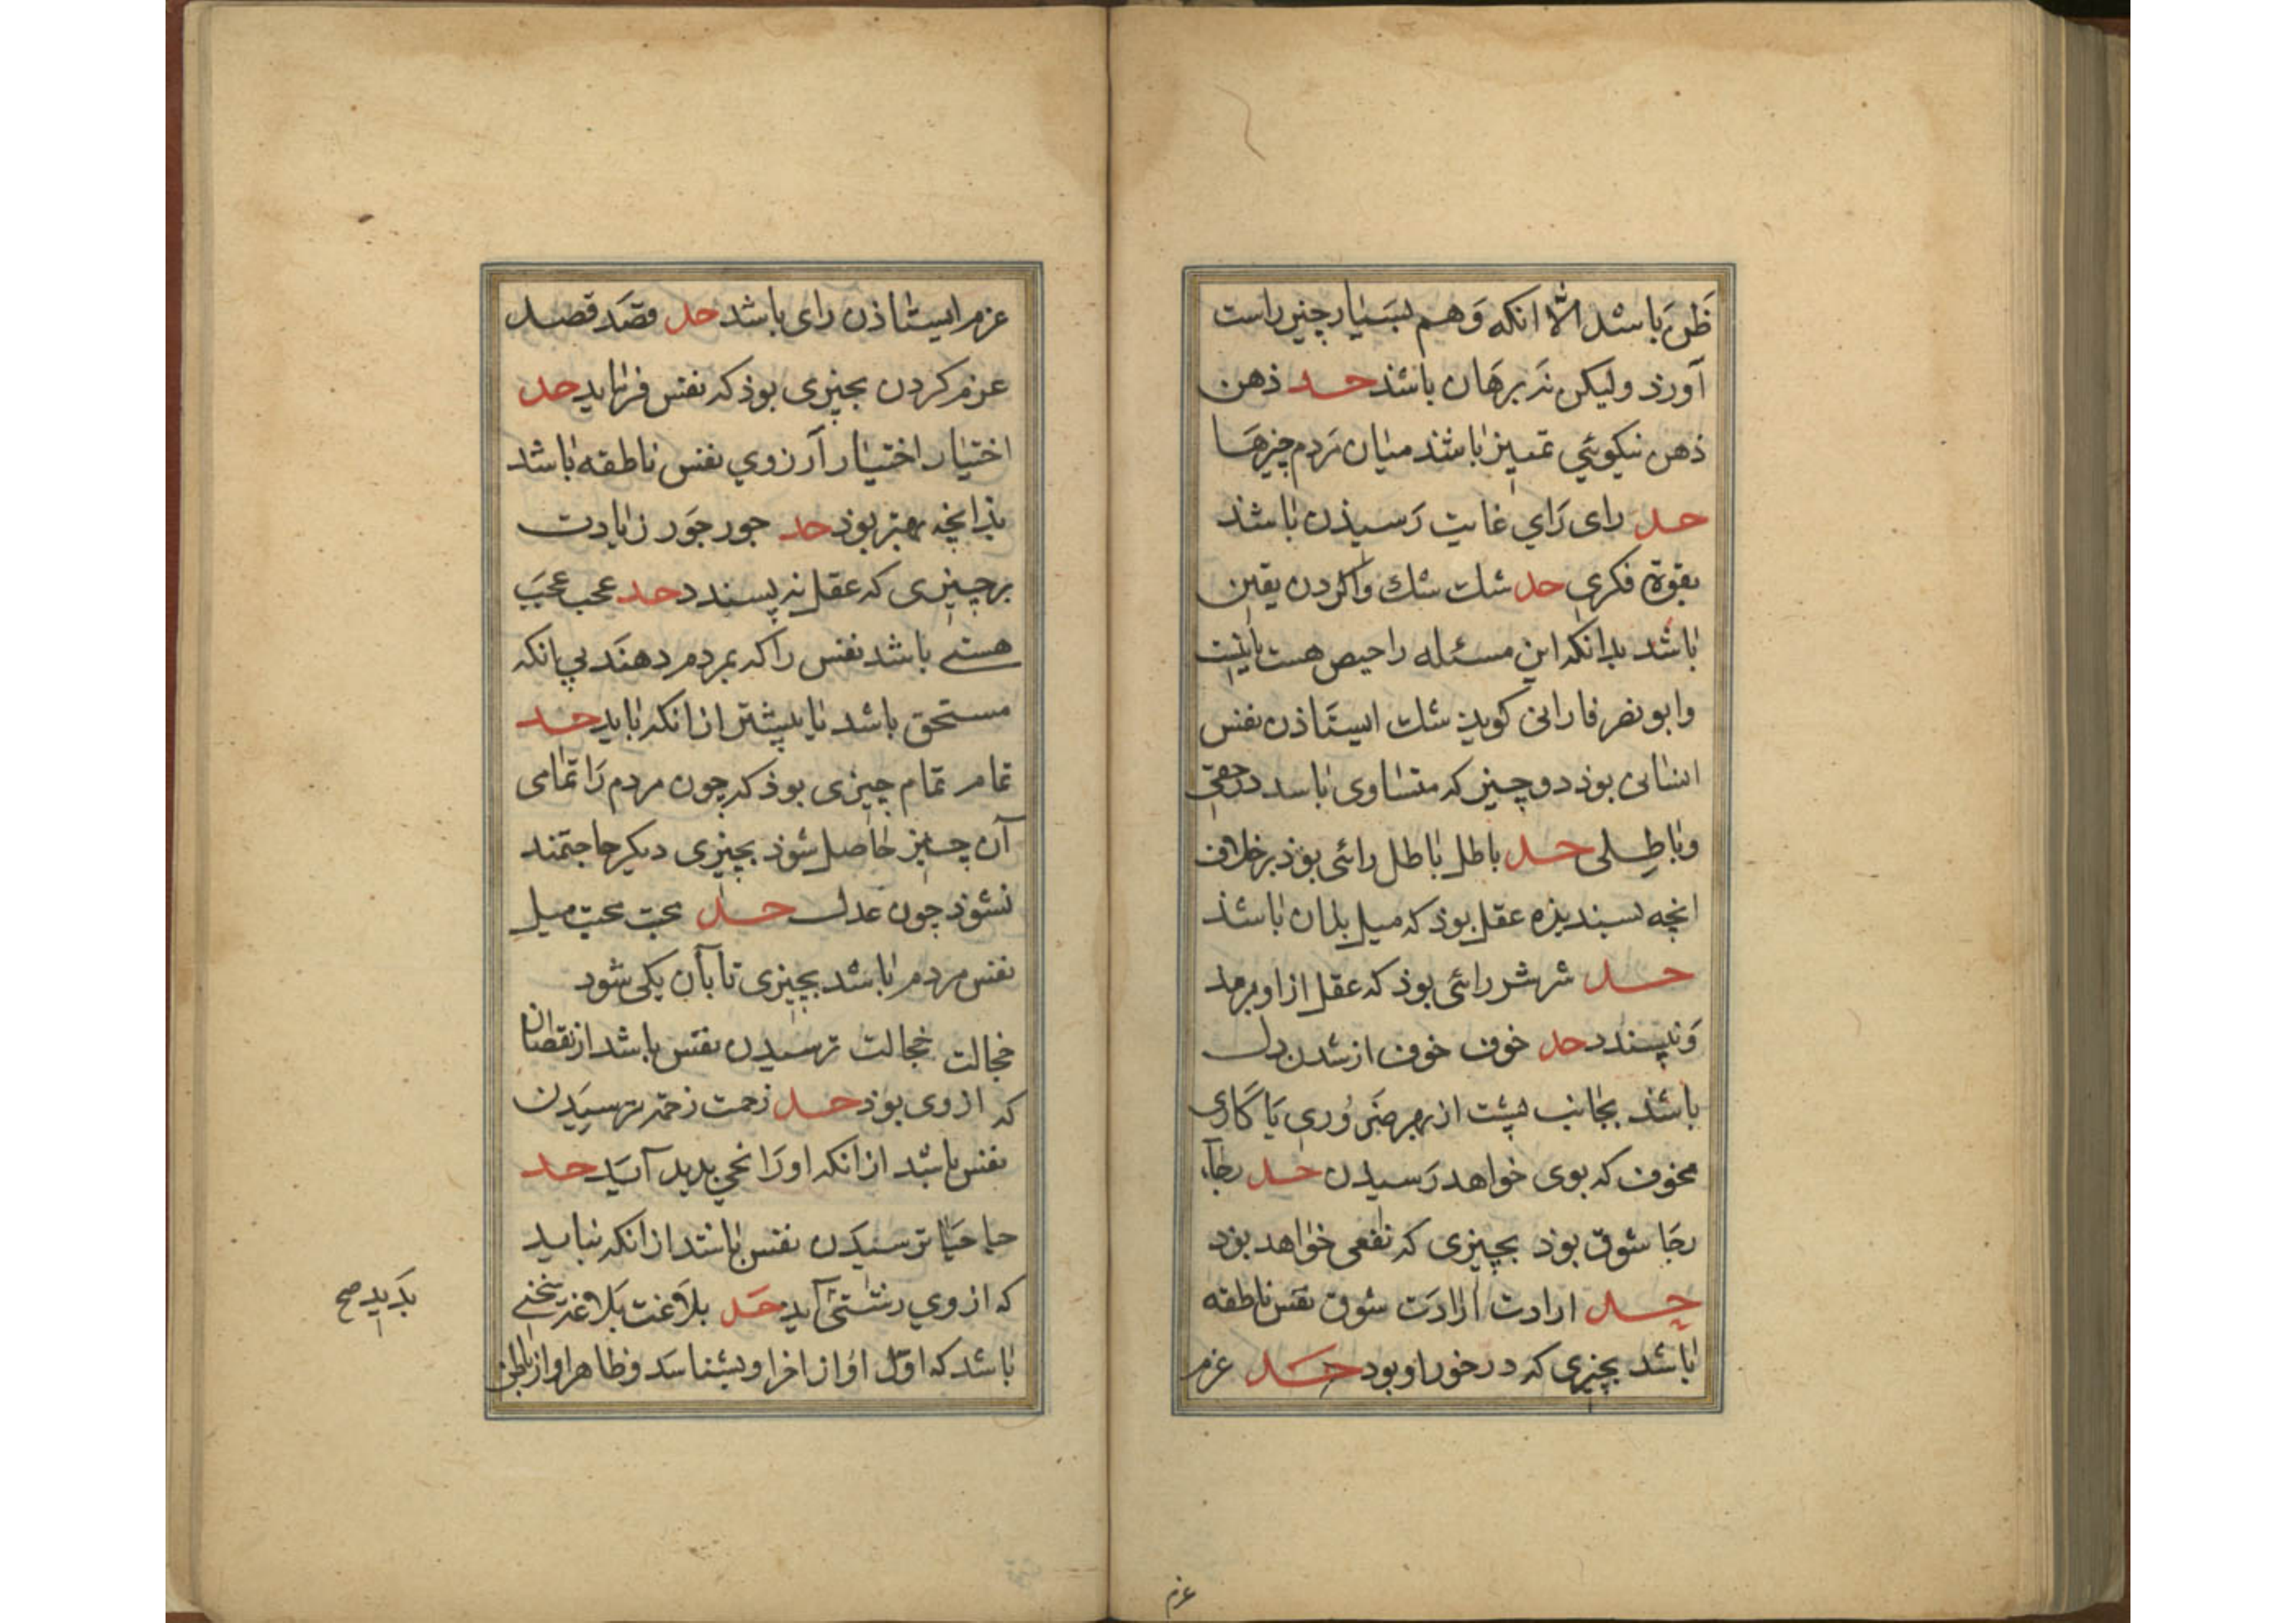 ظن باشد الا انکه وهم بسیار چنین راست
آورذ ولیکن نه برهان باشذ حد ذهن
ذهن نیکوئي تمییز باشند میان مردم چیزها
حد رای رای غایت رسیذن باشذ
بقوة فکری حد شك شك واکردن یقین
باشد بدانکه این مسئله راحیص هست یا نیست
وابو نصر فارابی کویذ شك ایستاذن نفس
انسانی بوذ دو چیز که متساوی باسد در حقی
وباطلی حد باطل باطل رائی بوذ برخلاف
انچه پسندیذه عقل بوذ که میل بدان باشذ
حد شر شر رائی بوذ که عقل از او برمد
ونپسندد حد خوف خوف از شدن دل
باشذ بجانب پشت از بهر ضروری یا کاری
مخوف که بوی خواهد رسیدن حد رجآء
رجا شوق بوذ بچیزی که نفعی خواهد بود
حد ارادت ارادت شوق نفس ناطقه
باشد بچیزی که در خور او بود حد عزم
عزم
عزم ایستاذن رای باشد حد قصد قصد
عزم کردن بچیزی بوذ که نفس فرماید حد
اختیار اختیار آرزوي نفس ناطقه باشد
بذانچه بهتر بوذ حد جور جور زیادت
بر چیزی که عقل نه پسندد حد عجب عجب
هستی باشد نفس را که بمردم دهند بی انکه
مستحق باشد یا بیشتر از انکه باید حد
تمام تمام چیزی بوذ که چون مردم را تمامی
آن چیز حاصل شوذ بچیزی دیکر حاجتمند
نشوذ چون عدل حد محبت محبت میل
نفس مردم باشد بچیزی تا بآن یکی شود
خجالت خجالت ترسیدن نفس باشد از نقصان
که از وی بوذ حد زحمت زحمة ترسیدن
نفس باشد از انکه او را رنجی پدید آید حد
حیا حیا ترسیدن نفس باشد از انکه نباید
که از وي زشتی آید حد بلاغت بلاغة سخنی
باشد که اول او از اخر او بشناسد وظاهر او از باطن
بدید صح